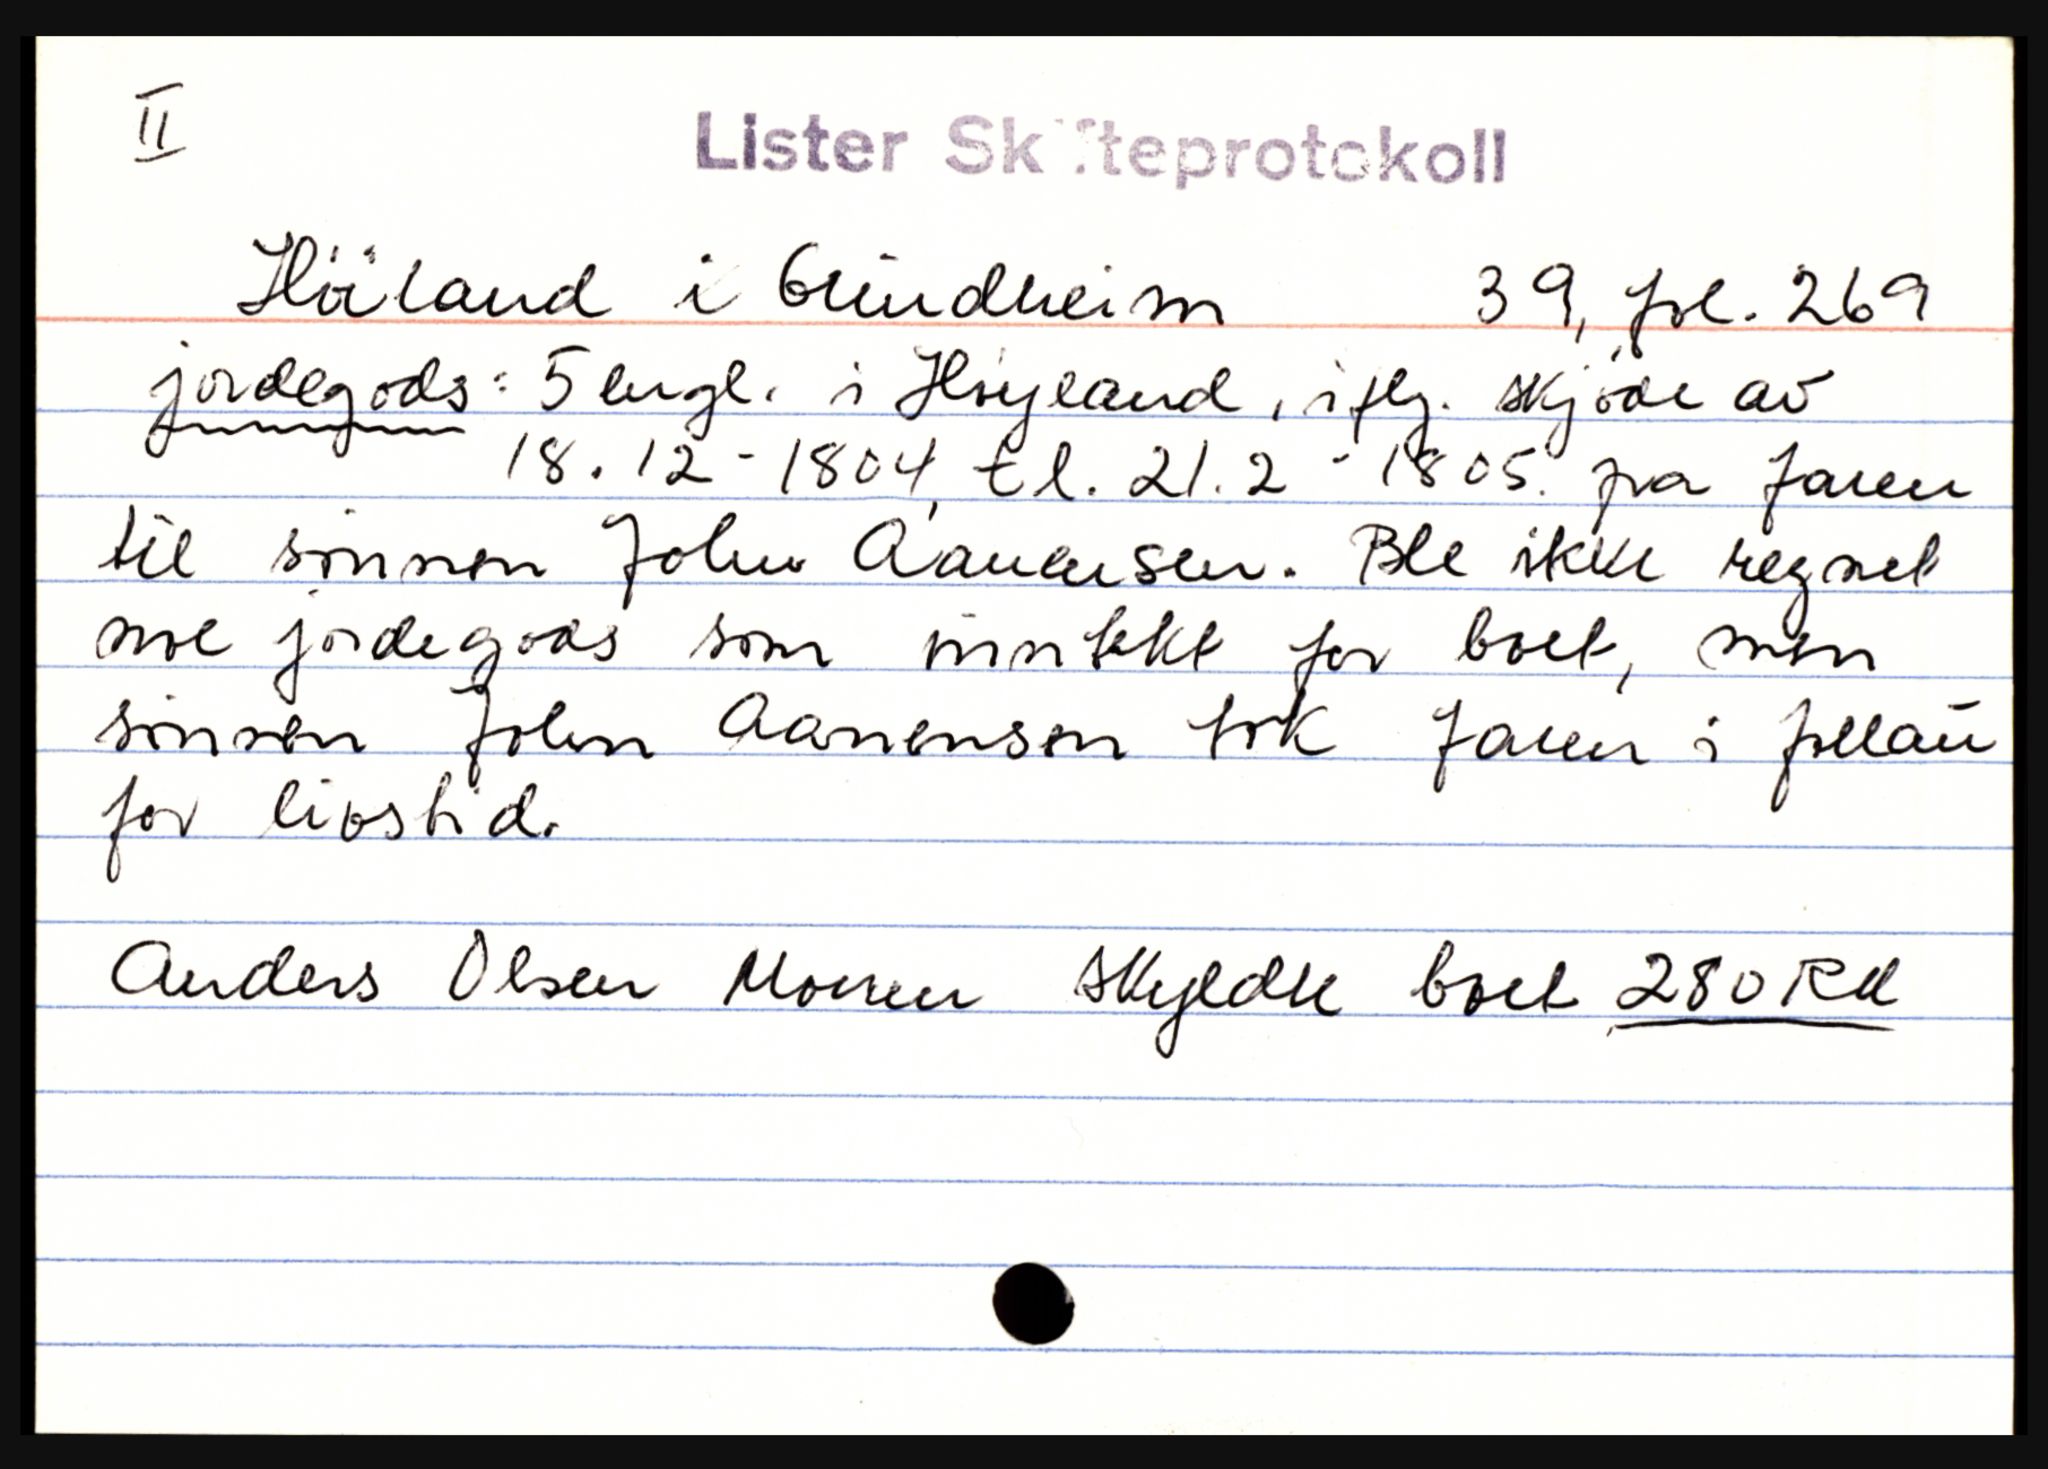 II
Lister Skifteprotokoll
Höiland i Grindheim 39, fol. 269
jordegods: 5 engl. i Høyland, iflg. skjøde av
18.12-1804, tl. 21.2-1805. fra faren
til sønnen John Aanensen. Ble ikke regnet
noe jordegods som inntekt for boet, men
sønnen John Aanensen tok faren i follau
for livstid.
Anders Olsen Moenen skyldte boet 280 Rd